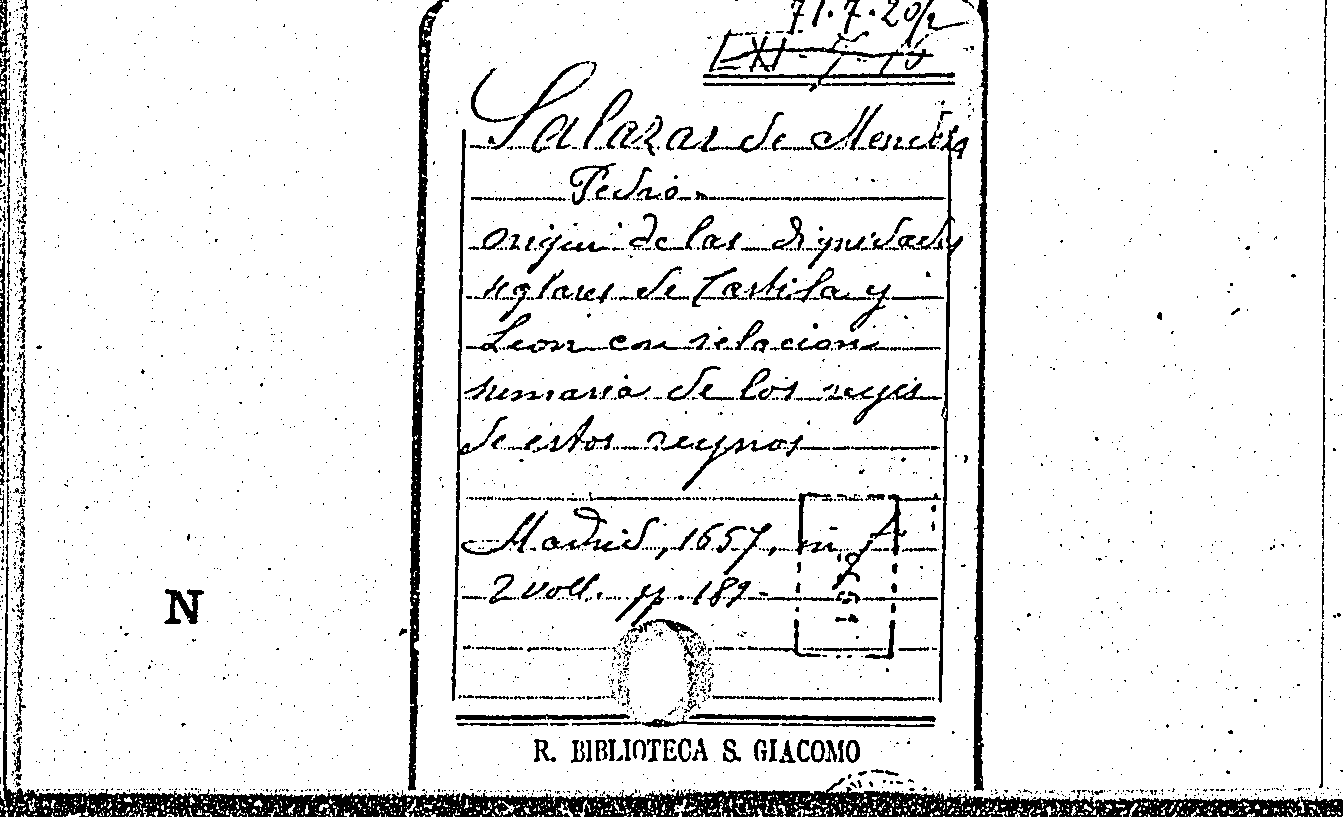 71.7.20/2
LXI-7-16
Salazar de Mendoza
Pedro.
origin de las dignidades
seglares de Castila y
Leon con relacion
sumaria de los reyes
de estos reynos
Madrid, 1657, in f.
2 voll. pp. 189-
N
R. BIBLIOTECA S. GIACOMO